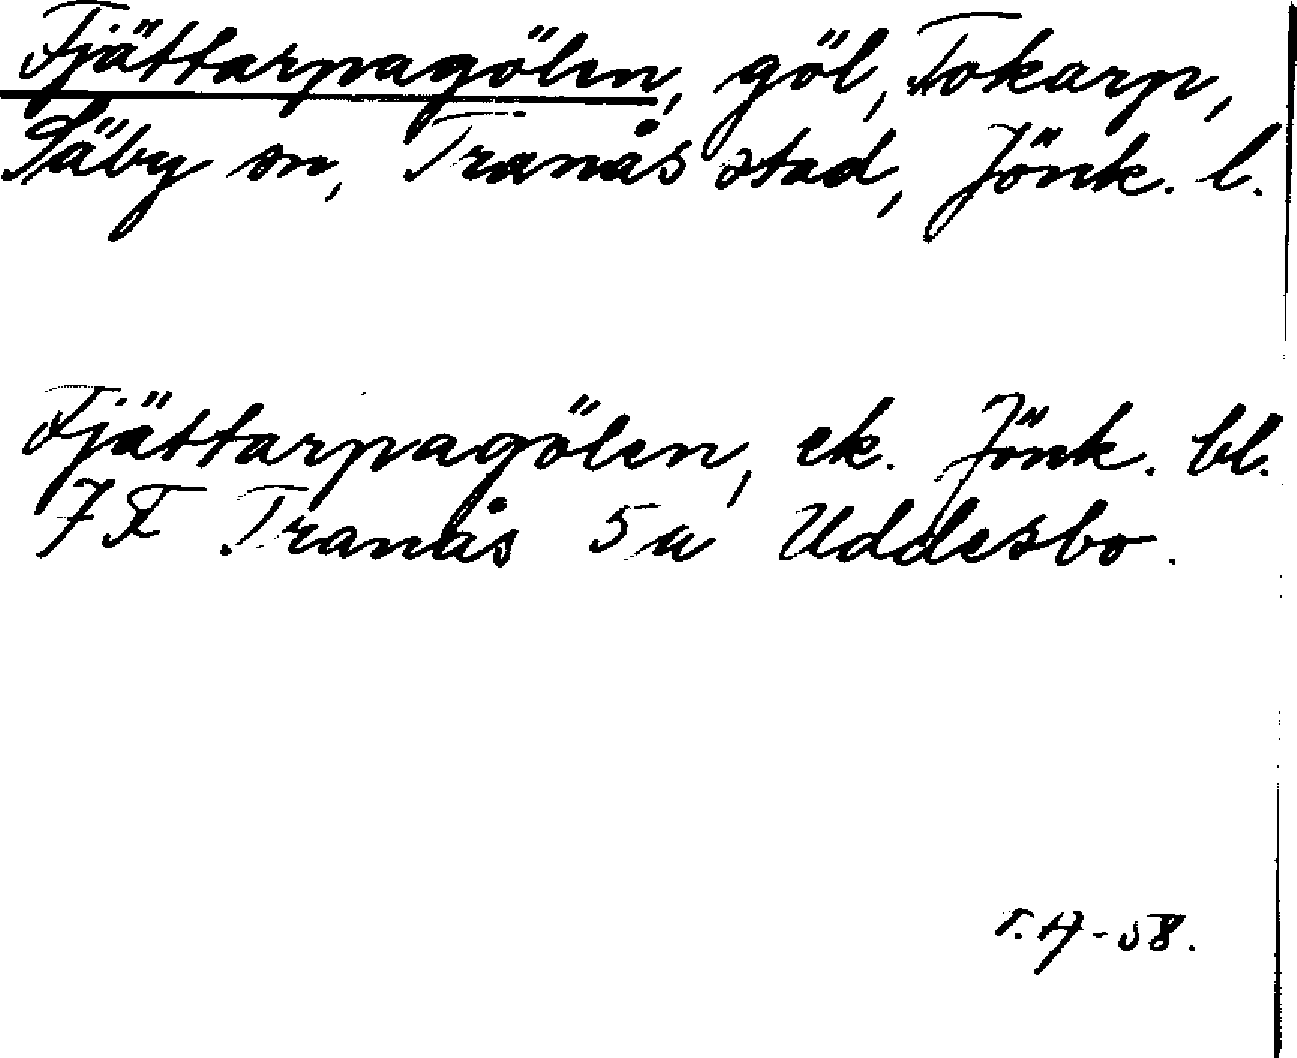 Fjättarpagölen, göl, Tokarp,
Säby sn, Tranås stad, Jönk. l.
Fjättarpagölen, ek. Jönk. bl.
7F Tranås 5a Uddesbo.
T.H-58.